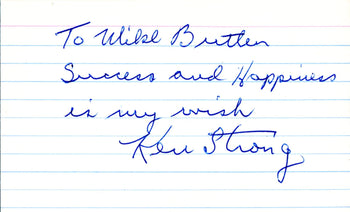 To Mike Britten
Success and Happiness
is my wish
Ken Strong